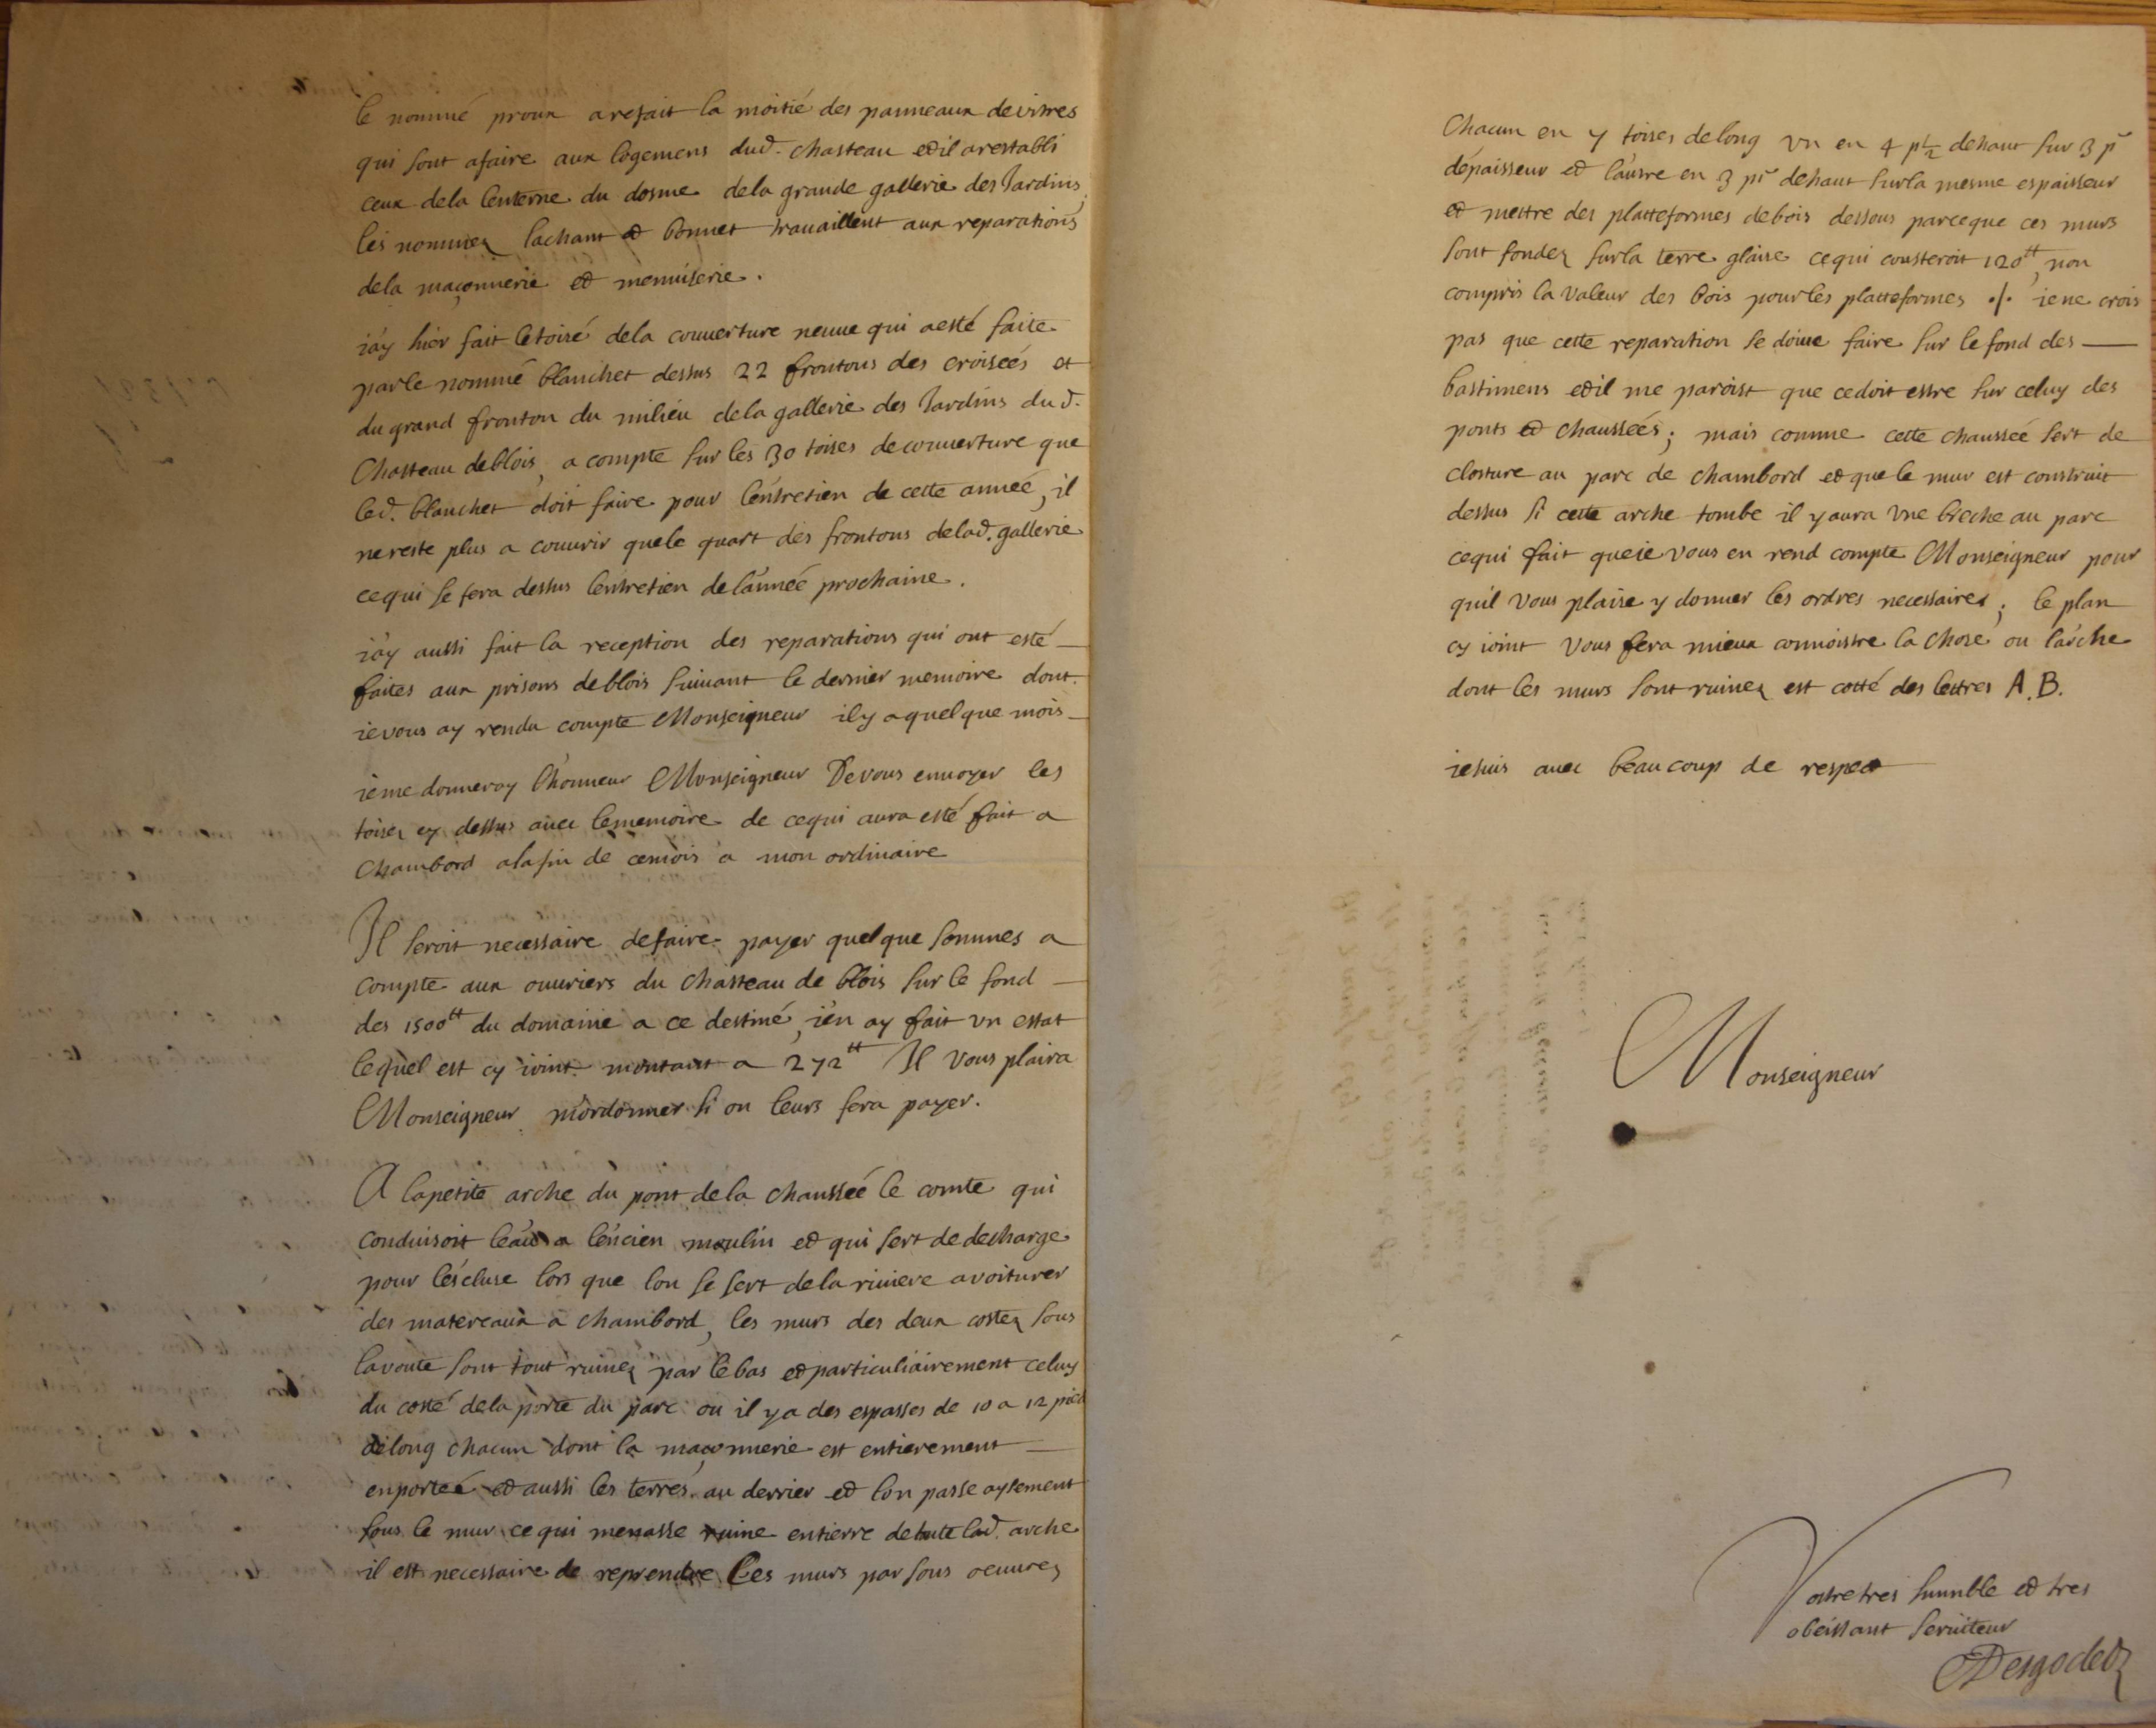 le nommé proux a refait la moitié des panneaux de vitres
qui sont a faire aux logemens dud. chasteau et il a restabli
ceux de la lenterne du dosme de la grande gallerie des Jardins,
les nommez lachant et bonnet travaillent aux reparations
de la maçonnerie et menuiserie.
i'ay hier fait le toisé de la couuerture neuue qui a esté faite
par le nommé blanchet dessus 22 frontons des croiseés et
du grand fronton du milieu de la gallerie des Jardins dud.
Chasteau de blois, a compte sur les 30 toises de couuerture que
led. blanchet doit faire pour l'entretien de cette anneé, il
ne reste plus a couurir que le quart des frontons de lad. gallerie
ce qui se fera dessus l'entretien de l'anneé prochaine.
i'ay aussi fait la reception des reparations qui ont esté
faites aux prisons de blois suiuant le dernier memoire dont
ie vous ay rendu compte Monseigneur il y a quelque mois
ie me donneray l'honneur Monseigneur De vous enuoyer les
toisez cy dessus auec le memoire de ce qui aura esté fait a
Chambord a la fin de ce mois a mon ordinaire
Il seroit necessaire de faire payer quelque sommes a
compte aux ouuriers du chasteau de blois sur le fond
des 1500tt du domaine a ce destiné, i'en ay fait vn estat
lequel est cy ioint montant a 272tt Il vous plaira
Monseigneur m'ordonner si on leurs fera payer.
A la petite arche du pont de la chausseé le comte qui
conduisoit l'eau a l'encien moulin et qui sert de decharge
pour l'escluse lors que lon se sert de la riuiere a voiturer
des matereaux a chambord, les murs des deux costez sous
la voute sont tout ruinez par le bas et particuliairement celuy
du costé de la porte du parc ou il y a des espasses de 10 a 12 pied
de long chacun dont la maçonnerie est entierement
enporteé et aussi les terres au derrier et lon passe aysement
sous le mur ce qui menasse ruine entierre de toute lad. arche
il est necessaire de reprendre Ces murs par sous oeuures
Chacun en 7 toises de long vn en 4 p 1/2 de haut sur 3 p
d'epaisseur et l'autre en 3 p de haut sur la mesme espaisseur
et mettre des platteformes de bois dessous parceque ces murs
sont fondez sur la terre glaise ce qui cousteroit 120tt, non
compris la valeur des bois pour les platteformes ./. ie ne crois
pas que cette reparation se doiue faire sur le fond des
bastimens et il me paroist que ce doit estre sur celuy des
ponts et chausseés; mais comme cette chausseé sert de
closture au parc de chambord et que le mur est construit
dessus si cette arche tombe il y aura vne breche au parc
ce qui fait que ie vous en rend compte Monseigneur pour
quil vous plaise y donner les ordres necessaires; le plan
cy ioint vous fera mieux connoistre la chose ou l'arche
dont les murs sont ruinez est cotté des lettres A.B.
ie suis auec beaucoup de respect
Monseigneur
Vostre tres humble et tres
obeissant seruiteur
Desgodetz